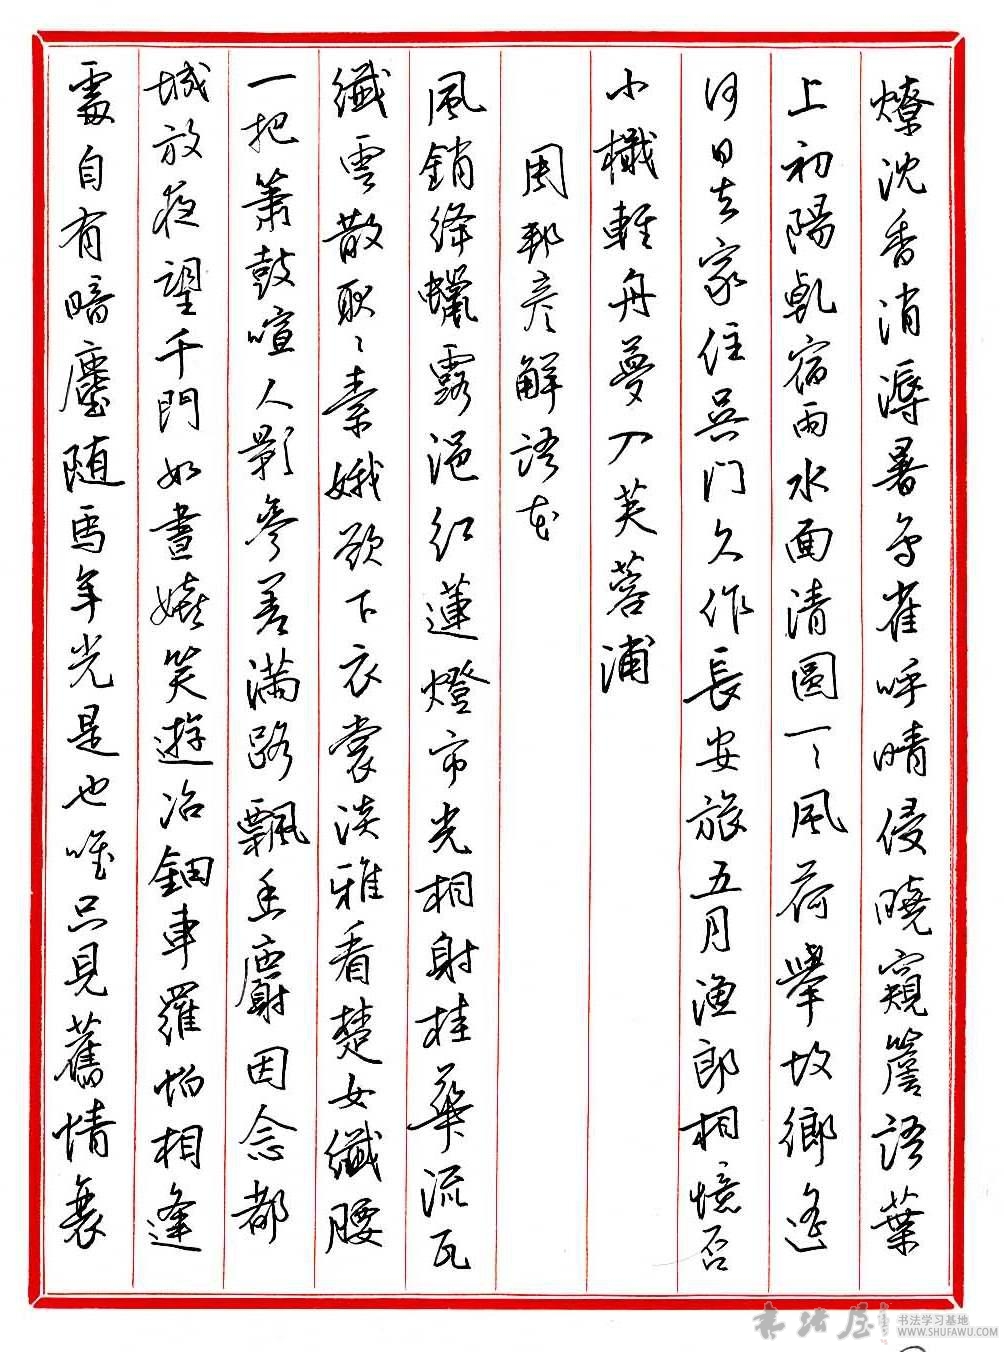 燎沈香消溽暑鸟雀呼晴侵曉窺簷語葉
上初陽乾宿雨水面清圓一〻風荷舉故鄉遙
何日去家住吳门久作長安旅五月渔郎相憶否
小檝輕舟夢入芙蓉浦
周邦彦解语花
風銷绛蠟露浥红蓮燈市光相射桂華流瓦
纖雲散耿〻素娥欲下衣裳淡雅看楚女纖腰
一把簫鼓喧人影參差满路飄香麝因念都
城放夜望千門如晝嬉笑遊冶鈿車羅帕相逢
處自有暗塵随馬年光是也唯只見舊情衰
书法屋
书法学习基地
WWW.SHUFAWU.COM